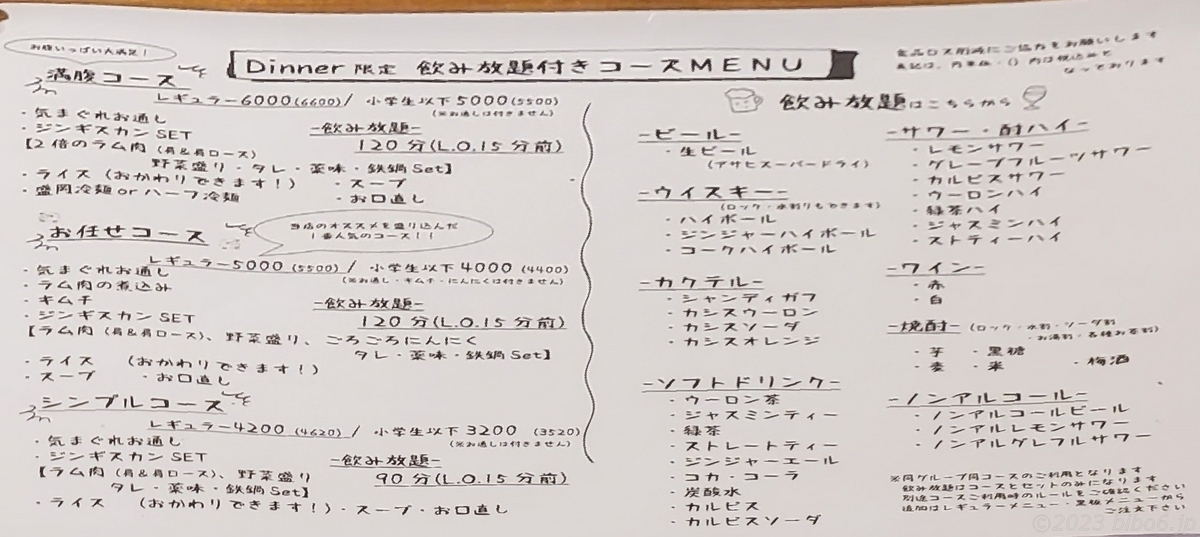 お腹いっぱい大満足！
Dinner 限定 飲み放題付きコースMENU
食品ロス削減にご協力をお願いします
表記は、円単位・()内は税込みと
なっております
満腹コース
レギュラー6000(6600)/ 小学生以下5000(5500)
(※お通しは付きません)
・気まぐれお通し
・ジンギスカンSET
【2倍のラム肉(肩&肩ロース)
野菜盛り・タレ・薬味・鉄鍋Set】
・ライス(おかわりできます！) ・スープ
・盛岡冷麺orハーフ冷麺 ・お口直し
-飲み放題-
120分(L.O.15分前)
お任せコース
当店のオススメを盛り込んだ
1番人気のコース！！
レギュラー5000(5500)/ 小学生以下4000(4400)
(※お通し・キムチ・にんにくは付きません)
・気まぐれお通し
・ラム肉の煮込み
・キムチ
・ジンギスカンSET
【ラム肉(肩&肩ロース)、野菜盛り、ごろごろにんにく
タレ・薬味・鉄鍋Set】
・ライス (おかわりできます！)
・スープ ・お口直し
-飲み放題-
120分(L.O.15分前)
シンプルコース
レギュラー4200(4620)/ 小学生以下3200(3520)
(※お通しは付きません)
・気まぐれお通し
・ジンギスカンSET
【ラム肉(肩&肩ロース)、野菜盛り
タレ・薬味・鉄鍋Set】
・ライス (おかわりできます！)・スープ・お口直し
-飲み放題-
90分(L.O.15分前)
飲み放題はこちらから
-ビール-
・生ビール
(アサヒスーパードライ)
-ウイスキー-
(ロック・水割りもできます)
・ハイボール
・ジンジャーハイボール
・コークハイボール
-カクテル-
・シャンディガフ
・カシスウーロン
・カシスソーダ
・カシスオレンジ
-ソフトドリンク-
・ウーロン茶
・ジャスミンティー
・緑茶
・ストレートティー
・ジンジャーエール
・コカ・コーラ
・炭酸水
・カルピス
・カルピスソーダ
-サワー・酎ハイ-
・レモンサワー
・グレープフルーツサワー
・カルピスサワー
・ウーロンハイ
・緑茶ハイ
・ジャスミンハイ
・ストティーハイ
-ワイン-
・赤
・白
-焼酎-(ロック・水割・ソーダ割
・お湯割・各種お茶割)
・芋 ・黒糖
・麦 ・米 ・梅酒
-ノンアルコール-
・ノンアルコールビール
・ノンアルレモンサワー
・ノンアルグレフルサワー
※同グループ同コースのご利用となります
飲み放題はコースとセットのみになります
別途コースご利用時のルールをご確認ください
追加はレギュラーメニュー・黒板メニューから
ご注文下さい
©2023 bibo6.jp